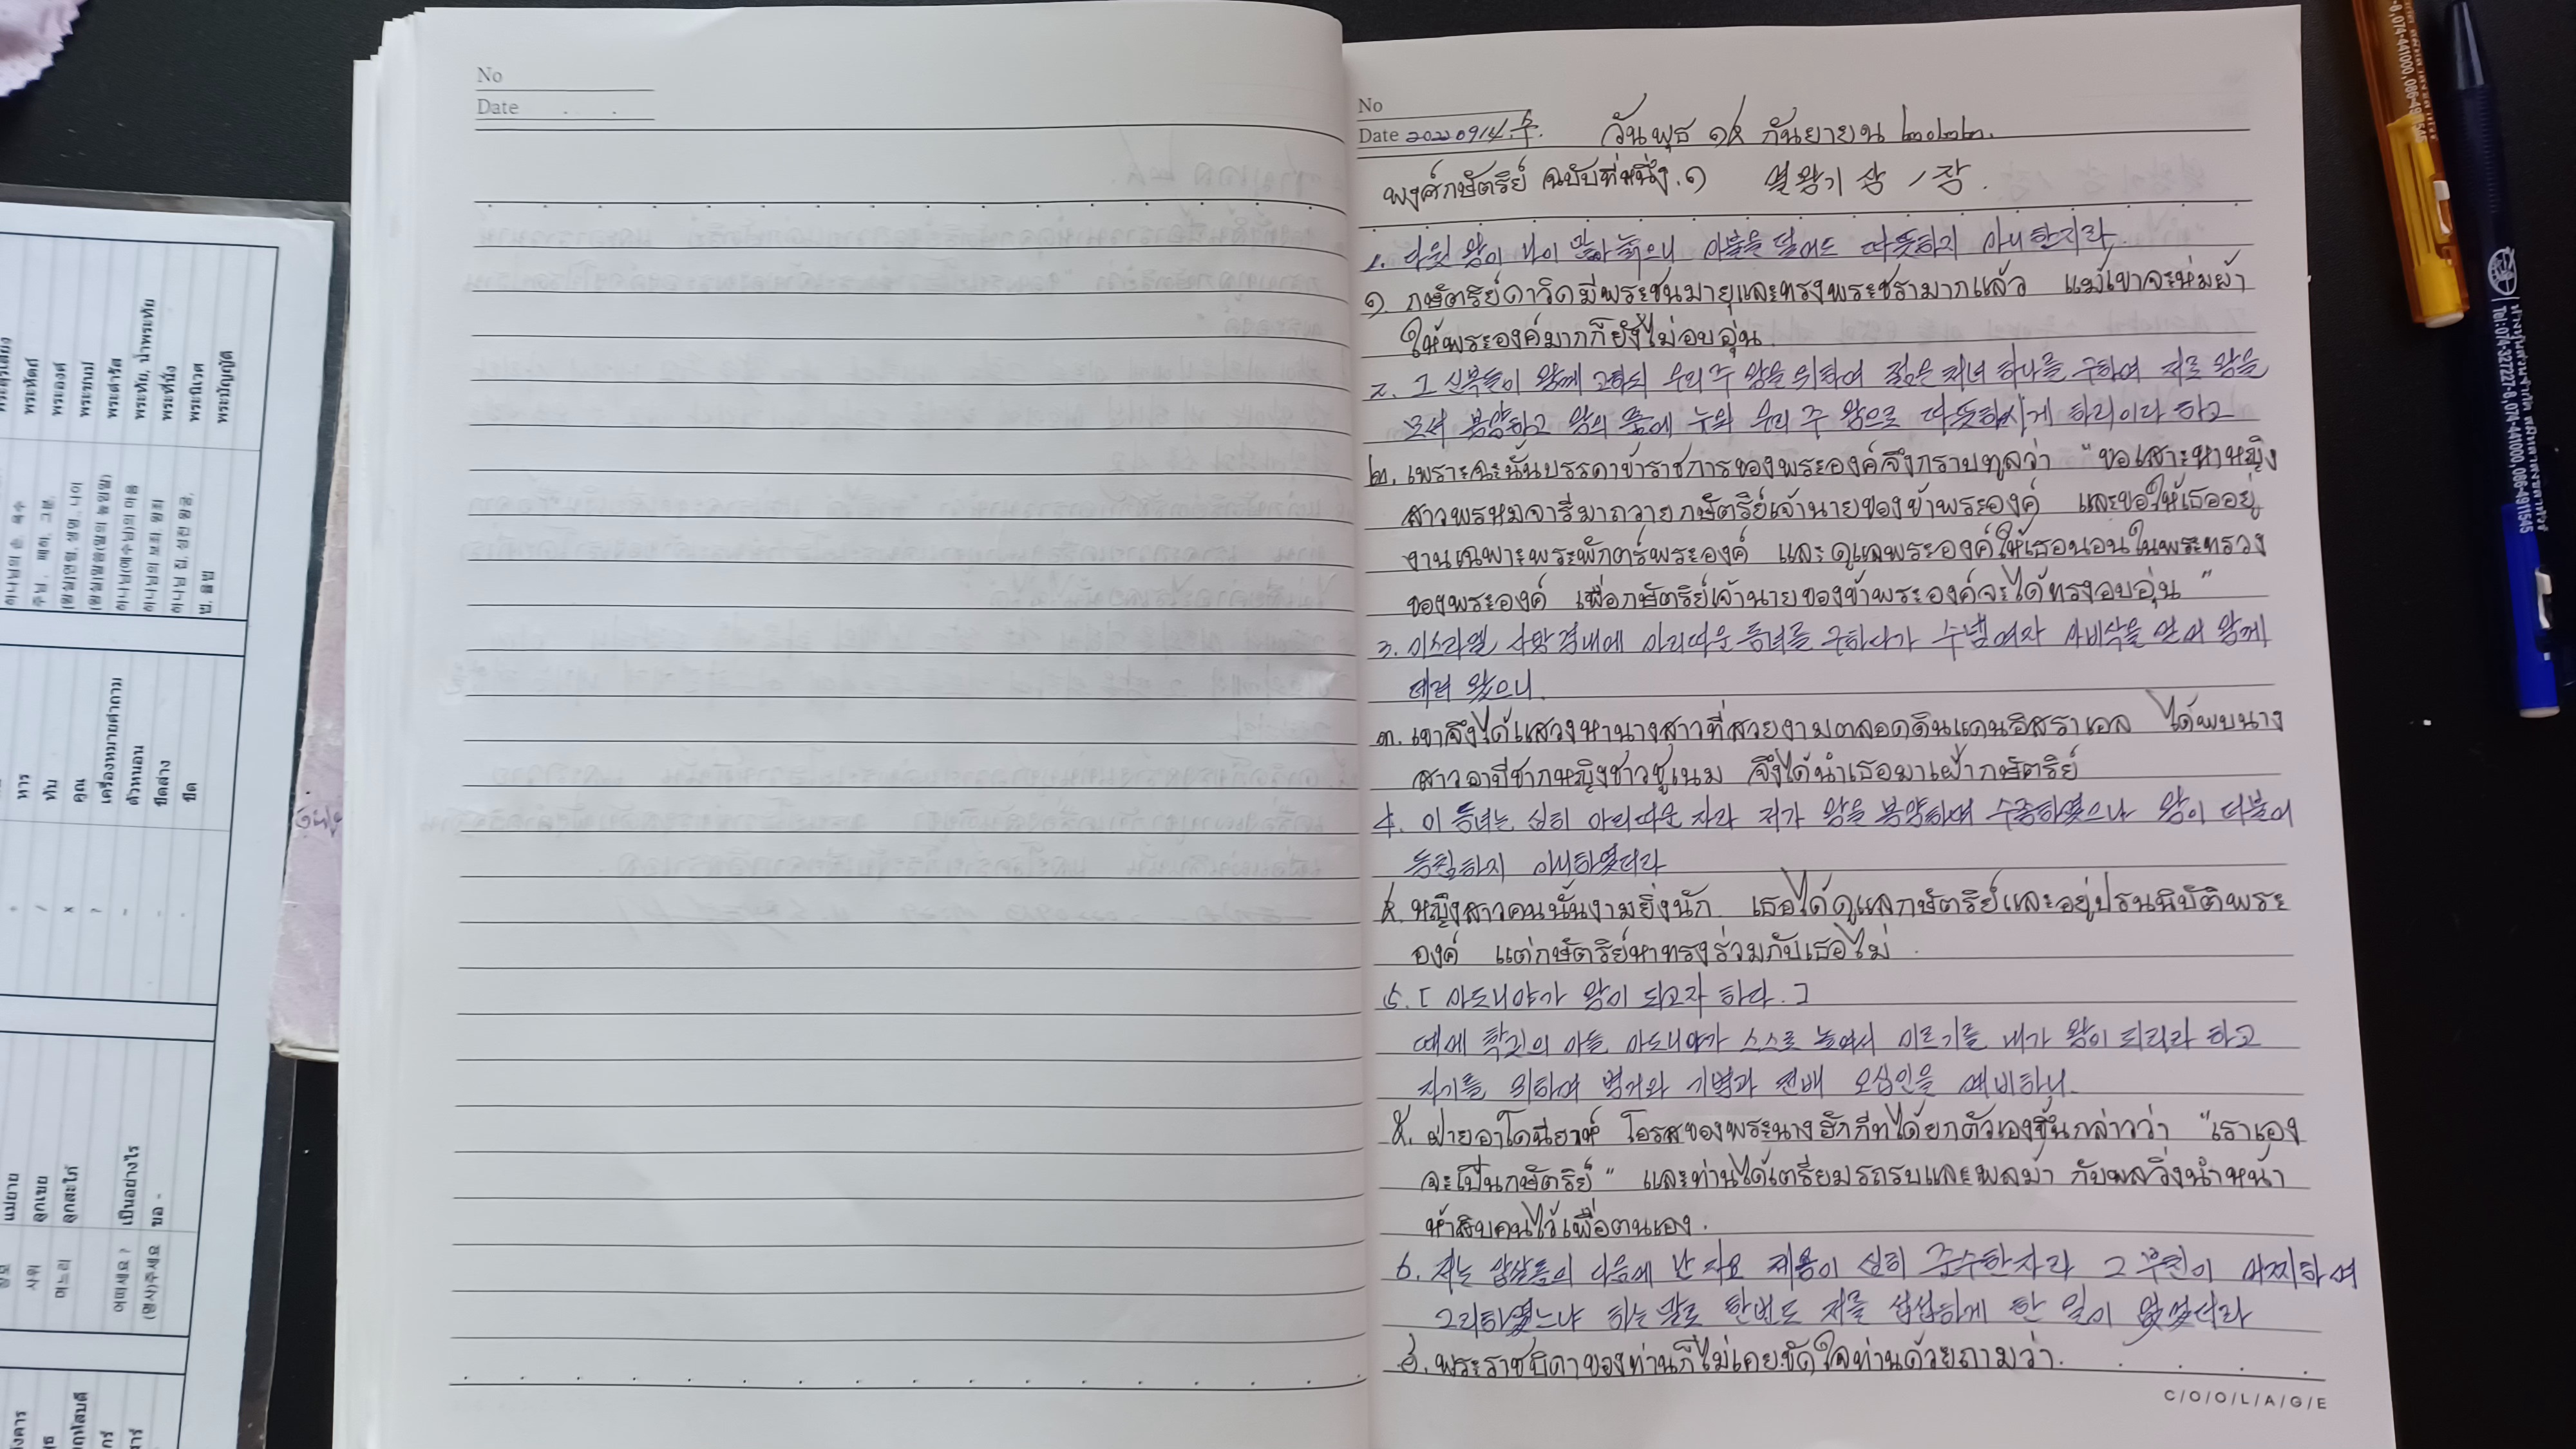 No
Date . .
No
Date 20220914.수. วันพุธ ๑๔ กันยายน ๒๐๒๒.
พงศ์กษัตริย์ ฉบับที่หนึ่ง.๑ 열왕기 상 1장.
1. 다윗 왕이 나이 많아 늙으니 이불을 덮어도 따뜻하지 아니한지라.
๑. กษัตริย์ดาวิดมีพระชนมายุและทรงพระชรามากแล้ว แม้เขาจะห่มผ้า
ให้พระองค์มากก็ยังไม่อบอุ่น.
2. 그 신복들이 왕께 고하되 우리 주 왕을 위하여 젊은 처녀 하나를 구하여 저로 왕을
모셔 봉양하고 왕의 품에 누워 우리 주 왕으로 따뜻하시게 하리이다 하고
๒. เพราะฉะนั้นบรรดาข้าราชการของพระองค์จึงกราบทูลว่า "ขอเสาะหาหญิง
สาวพรหมจารีมาถวายกษัตริย์เจ้านายของข้าพระองค์ และขอให้เธออยู่
งานเฉพาะพระพักตร์พระองค์ และดูแลพระองค์ให้เธอนอนในพระทรวง
ของพระองค์ เพื่อกษัตริย์เจ้านายของข้าพระองค์จะได้ทรงอบอุ่น"
3. 이스라엘 사방 경내에 아리따운 동녀를 구하다가 수넴 여자 아비삭을 얻어 왕께
데려 왔으니.
๓. เขาจึงได้แสวงหานางสาวที่สวยงามตลอดดินแดนอิสราเอล ได้พบนาง
สาวอาบีชากหญิงชาวชูเนม จึงได้นำเธอมาเฝ้ากษัตริย์
4. 이 동녀는 심히 아리따운 자라 저가 왕을 봉양하며 수종하였으나 왕이 더불어
동침하지 아니하였더라
๔. หญิงสาวคนนั้นงามยิ่งนัก เธอได้ดูแลกษัตริย์และอยู่ปรนนิบัติพระ
องค์ แต่กษัตริย์หาทรงร่วมกับเธอไม่.
5. [ 아도니야가 왕이 되고자 하다. ]
때에 학깃의 아들 아도니야가 스스로 높여서 이르기를 내가 왕이 되리라 하고
자기를 위하여 병거와 기병과 전배 오십인을 예비하니.
๕. ฝ่ายอาโดนียาห์ โอรสของพระนางฮักกีทได้ยกตัวเองขึ้นกล่าวว่า "เราเอง
จะเป็นกษัตริย์" และท่านได้เตรียมรถรบและพลม้า กับพลวิ่งนำหน้า
ห้าสิบคนไว้เพื่อตนเอง.
6. 저는 압살롬의 다음에 난 자요 체용이 심히 준수한자라 그 부친이 어찌하여
그리하였느냐 하는 말로 한번도 저를 섭섭하게 한 일이 없었더라
๖. พระราชบิดาของท่านก็ไม่เคยขัดใจท่านด้วยถามว่า.
C/O/O/L/A/G/E
พระหัตถ์
พระองค์
พระขนม์
พระดำรัส
พระทัย, น้ำพระทัย
พระที่นั่ง
พระนิเวศ
พระบัญญัติ
หาร
ทับ
คูณ
เครื่องหมายคำถาม
ตัวหนอน
ขีดล่าง
ขีด
แม่ยาย
ลูกเขย
ลูกสะใภ้
เป็นอย่างไร
ขอ -
사위
며느리
어떠세요 ?
(명사)주세요